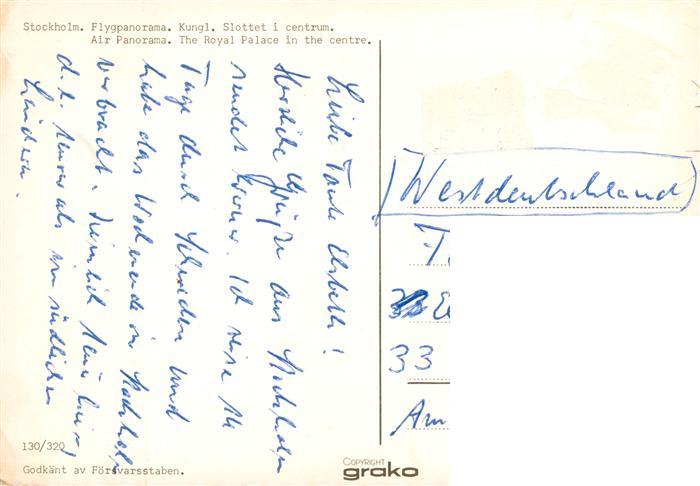 Stockholm. Flygpanorama. Kungl. Slottet i centrum.
Air Panorama. The Royal Palace in the centre.
Liebe Tante Elsbeth!
Herzliche Grüße aus Stockholm
sendet Ich reise
Tage durch Schweden und
habe das Wochenende in Stockholm
verbracht. Ziemlich
d. h. als im südlichen
(Westdeutschland)
33
130/320
Godkänt av Försvarsstaben.
COPYRIGHT
grako